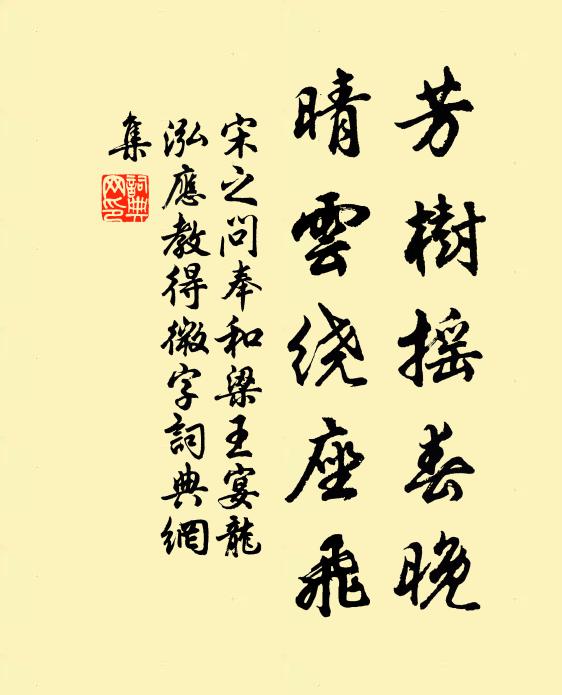 芳樹摇春晚
晴雲绕座飛
宋之问奉和梁王宴龍
泓應教得微字詞典網
集
詞典
网印